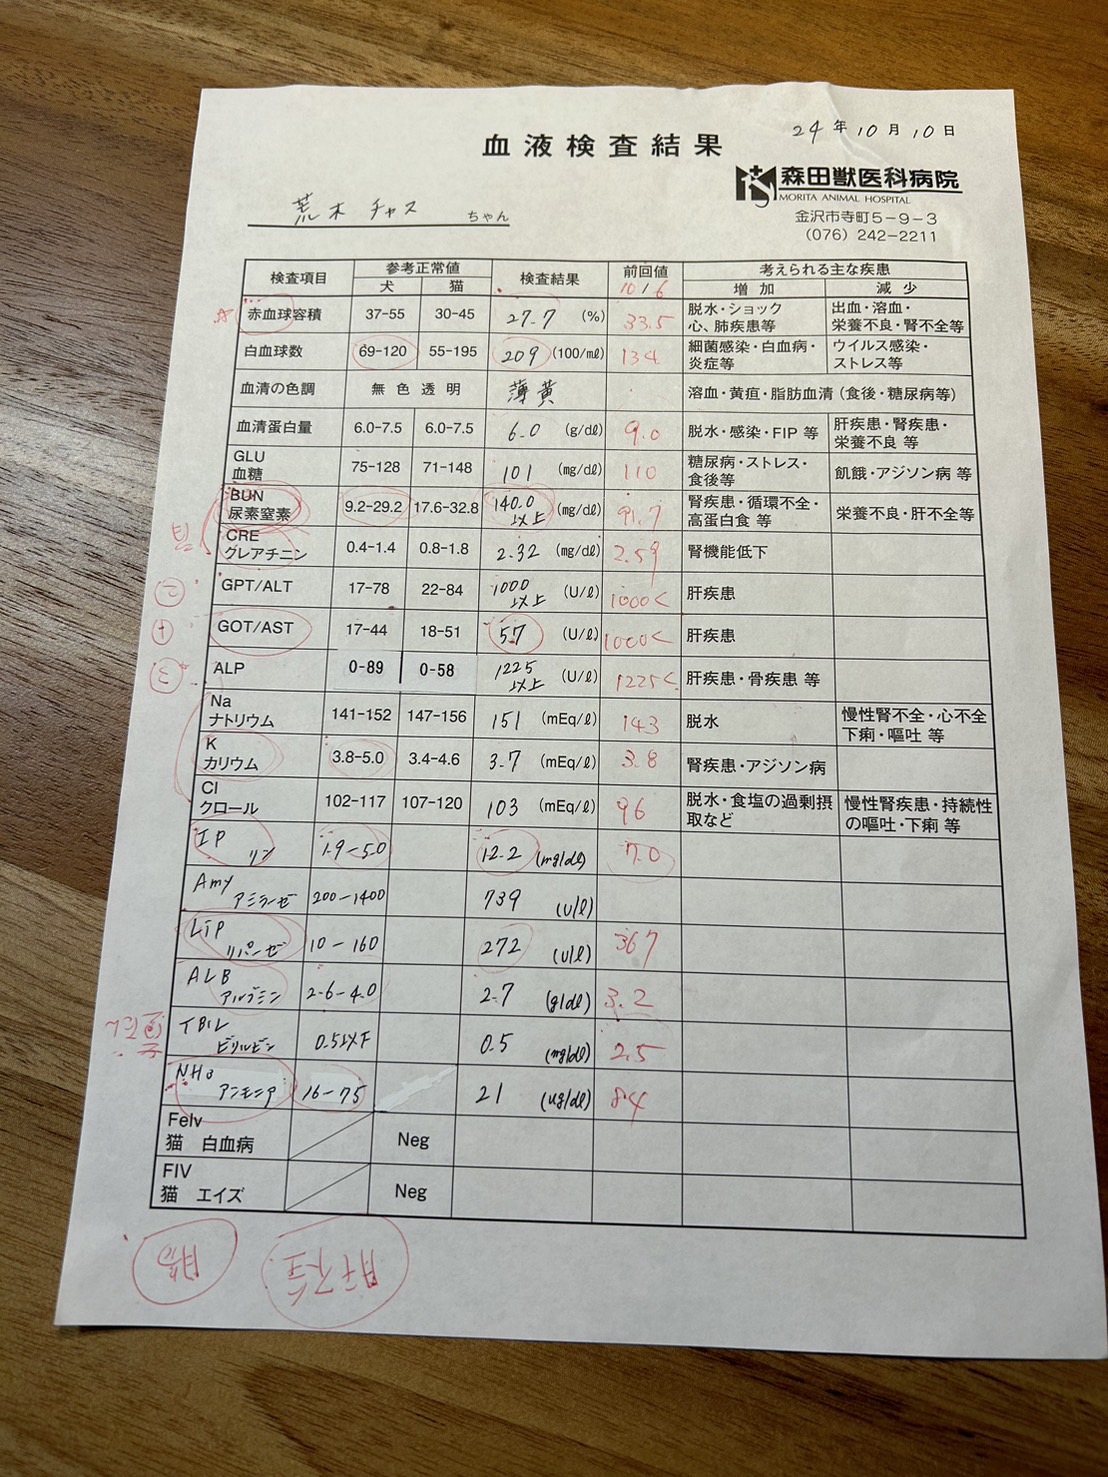 24年10月10日
血液検査結果
森田獣医科病院
MORITA ANIMAL HOSPITAL
金沢市寺町5-9-3
(076) 242-2211
荒木 チャス ちゃん
検査項目 参考正常値 検査結果 前回値 考えられる主な疾患
犬 猫 10/6 増加 減少
赤血球容積 37-55 30-45 27.7 (%) 33.5 脱水・ショック 心、肺疾患等 出血・溶血・栄養不良・腎不全等
白血球数 69-120 55-195 209 (100/mℓ) 134 細菌感染・白血病・炎症等 ウイルス感染・ストレス等
血清の色調 無色透明 薄黄 溶血・黄疸・脂肪血清（食後・糖尿病等）
血清蛋白量 6.0-7.5 6.0-7.5 6.0 (g/dℓ) 9.0 脱水・感染・FIP 等 肝疾患・腎疾患・栄養不良 等
GLU 血糖 75-128 71-148 101 (mg/dℓ) 110 糖尿病・ストレス・食後等 飢餓・アジソン病 等
BUN 尿素窒素 9.2-29.2 17.6-32.8 140.0以上 (mg/dℓ) 91.7 腎疾患・循環不全・高蛋白食 等 栄養不良・肝不全等
CRE クレアチニン 0.4-1.4 0.8-1.8 2.32 (mg/dℓ) 2.59 腎機能低下
② GPT/ALT 17-78 22-84 1000以上 (U/ℓ) 1000< 肝疾患
GOT/AST 17-44 18-51 57 (U/ℓ) 1000< 肝疾患
③ ALP 0-89 0-58 1225以上 (U/ℓ) 1225< 肝疾患・骨疾患 等
Na ナトリウム 141-152 147-156 151 (mEq/ℓ) 143 脱水 慢性腎不全・心不全 下痢・嘔吐 等
K カリウム 3.8-5.0 3.4-4.6 3.7 (mEq/ℓ) 3.8 腎疾患・アジソン病
Cl クロール 102-117 107-120 103 (mEq/ℓ) 96 脱水・食塩の過剰摂取など 慢性腎疾患・持続性の嘔吐・下痢 等
IP リン 1.9-5.0 12.2 (mg/dℓ) 7.0
Amy アミラーゼ 200-1400 739 (U/ℓ)
Lip リパーゼ 10-160 272 (U/ℓ) 367
ALB アルブミン 2.6-4.0 2.7 (g/dℓ) 3.2
TBIL ビリルビン 0.5以下 0.5 (mg/dℓ) 2.5
NH3 アンモニア 16-75 21 (ug/dℓ) 84
Felv 猫 白血病 Neg
FIV 猫 エイズ Neg
肝不全